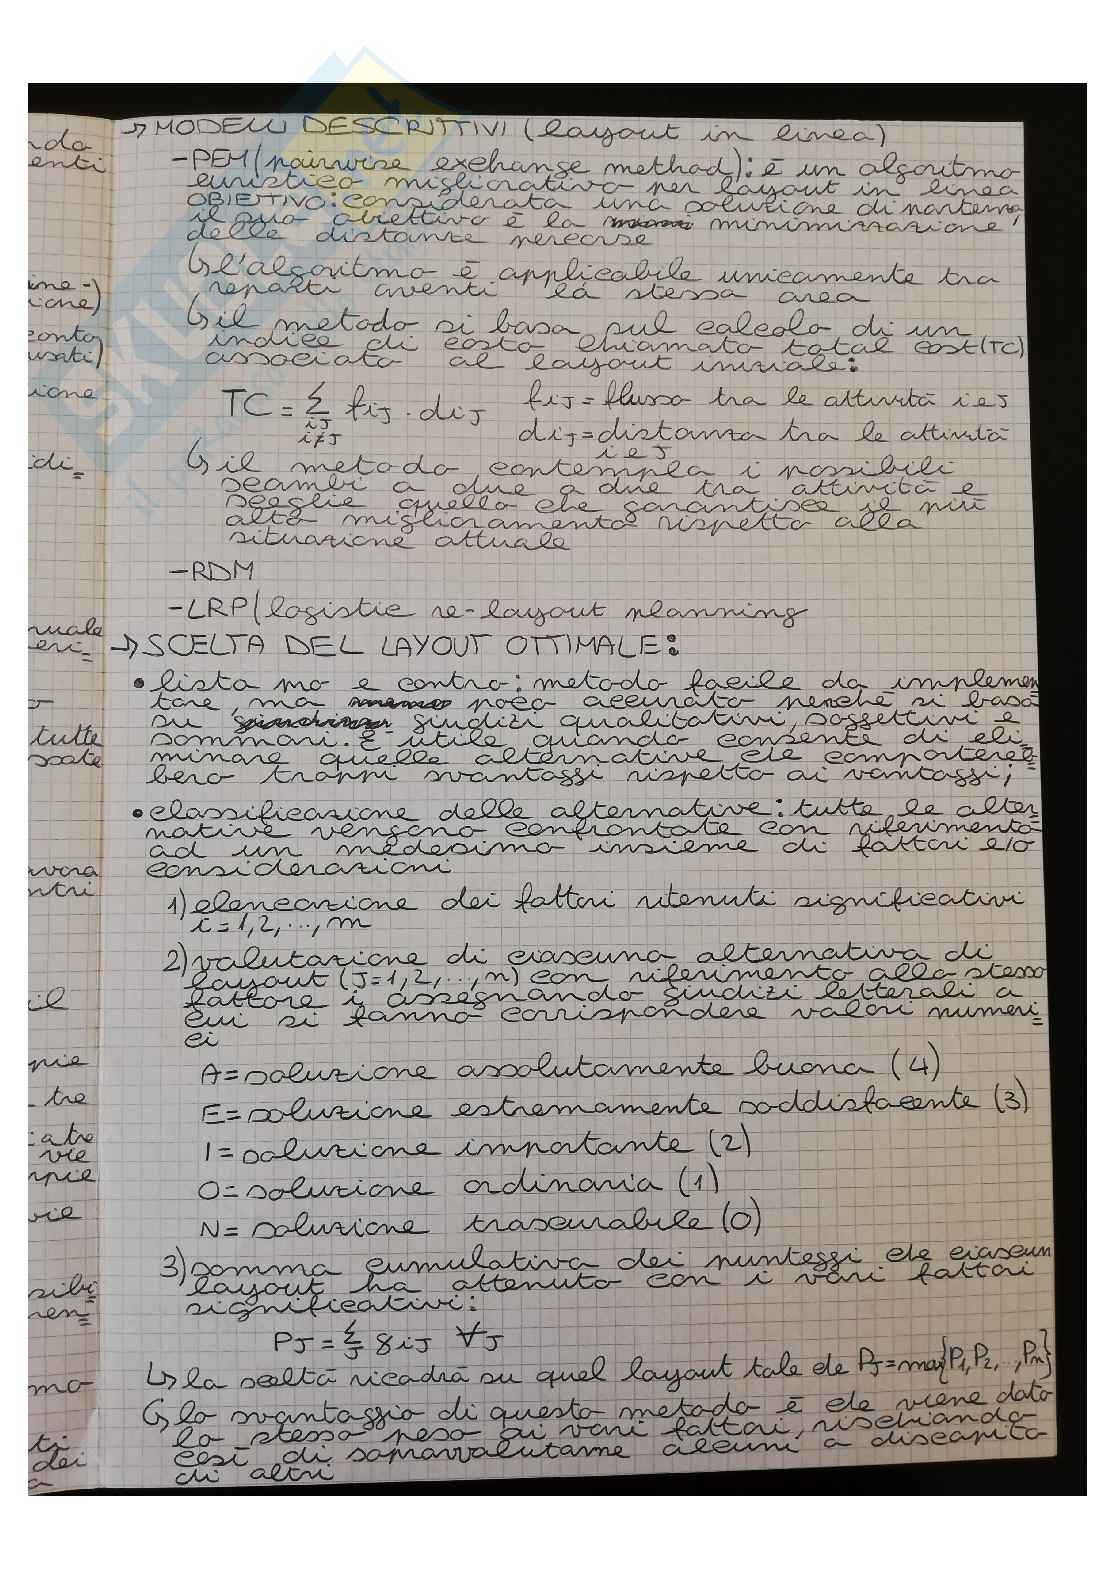 → MODELLI DESCRITTIVI (layout in linea)
- PEM (pairwise exchange method): è un algoritmo
euristico migliorativo per layout in linea
OBIETTIVO: considerata una soluzione di partenza,
il suo obiettivo è la minimizzazione
delle distanze percorse
↳ l'algoritmo è applicabile unicamente tra
reparti aventi la stessa area
↳ il metodo si basa sul calcolo di un
indice di costo chiamato total cost (TC)
associato al layout iniziale:
TC = Σ fiJ · diJ fiJ = flusso tra le attività i e J
iJ
i≠J
diJ = distanza tra le attività
i e J
↳ il metodo contempla i possibili
scambi a due a due tra attività e
sceglie quello che garantisce il più
alto miglioramento rispetto alla
situazione attuale
- RDM
- LRP (logistic re-layout planning
→ SCELTA DEL LAYOUT OTTIMALE:
• lista pro e contro: metodo facile da implemen
tare, ma poco accurato perché si basa
su giudizi qualitativi, soggettivi e
sommari. È utile quando consente di eli=
minare quelle alternative che comportereb=
bero troppi svantaggi rispetto ai vantaggi;
• classificazione delle alternative: tutte le alter=
native vengono confrontate con riferimento
ad un medesimo insieme di fattori e/o
considerazioni
1) elencazione dei fattori ritenuti significativi
i = 1, 2, ..., m
2) valutazione di ciascuna alternativa di
layout (J = 1, 2, ..., n) con riferimento allo stesso
fattore i, assegnando giudizi letterali a
cui si fanno corrispondere valori numeri=
ci
A = soluzione assolutamente buona (4)
E = soluzione estremamente soddisfacente (3)
I = soluzione importante (2)
O = soluzione ordinaria (1)
N = soluzione trascurabile (0)
3) somma cumulativa dei punteggi che ciascun
layout ha ottenuto con i vari fattori
significativi:
PJ = Σ giJ ∀J
J
↳ la scelta ricadrà su quel layout tale che PJ = max{P1, P2, .., Pn}
↳ lo svantaggio di questo metodo è che viene dato
lo stesso peso ai vari fattori, rischiando
così di sopravvalutarne alcuni a discapito
di altri